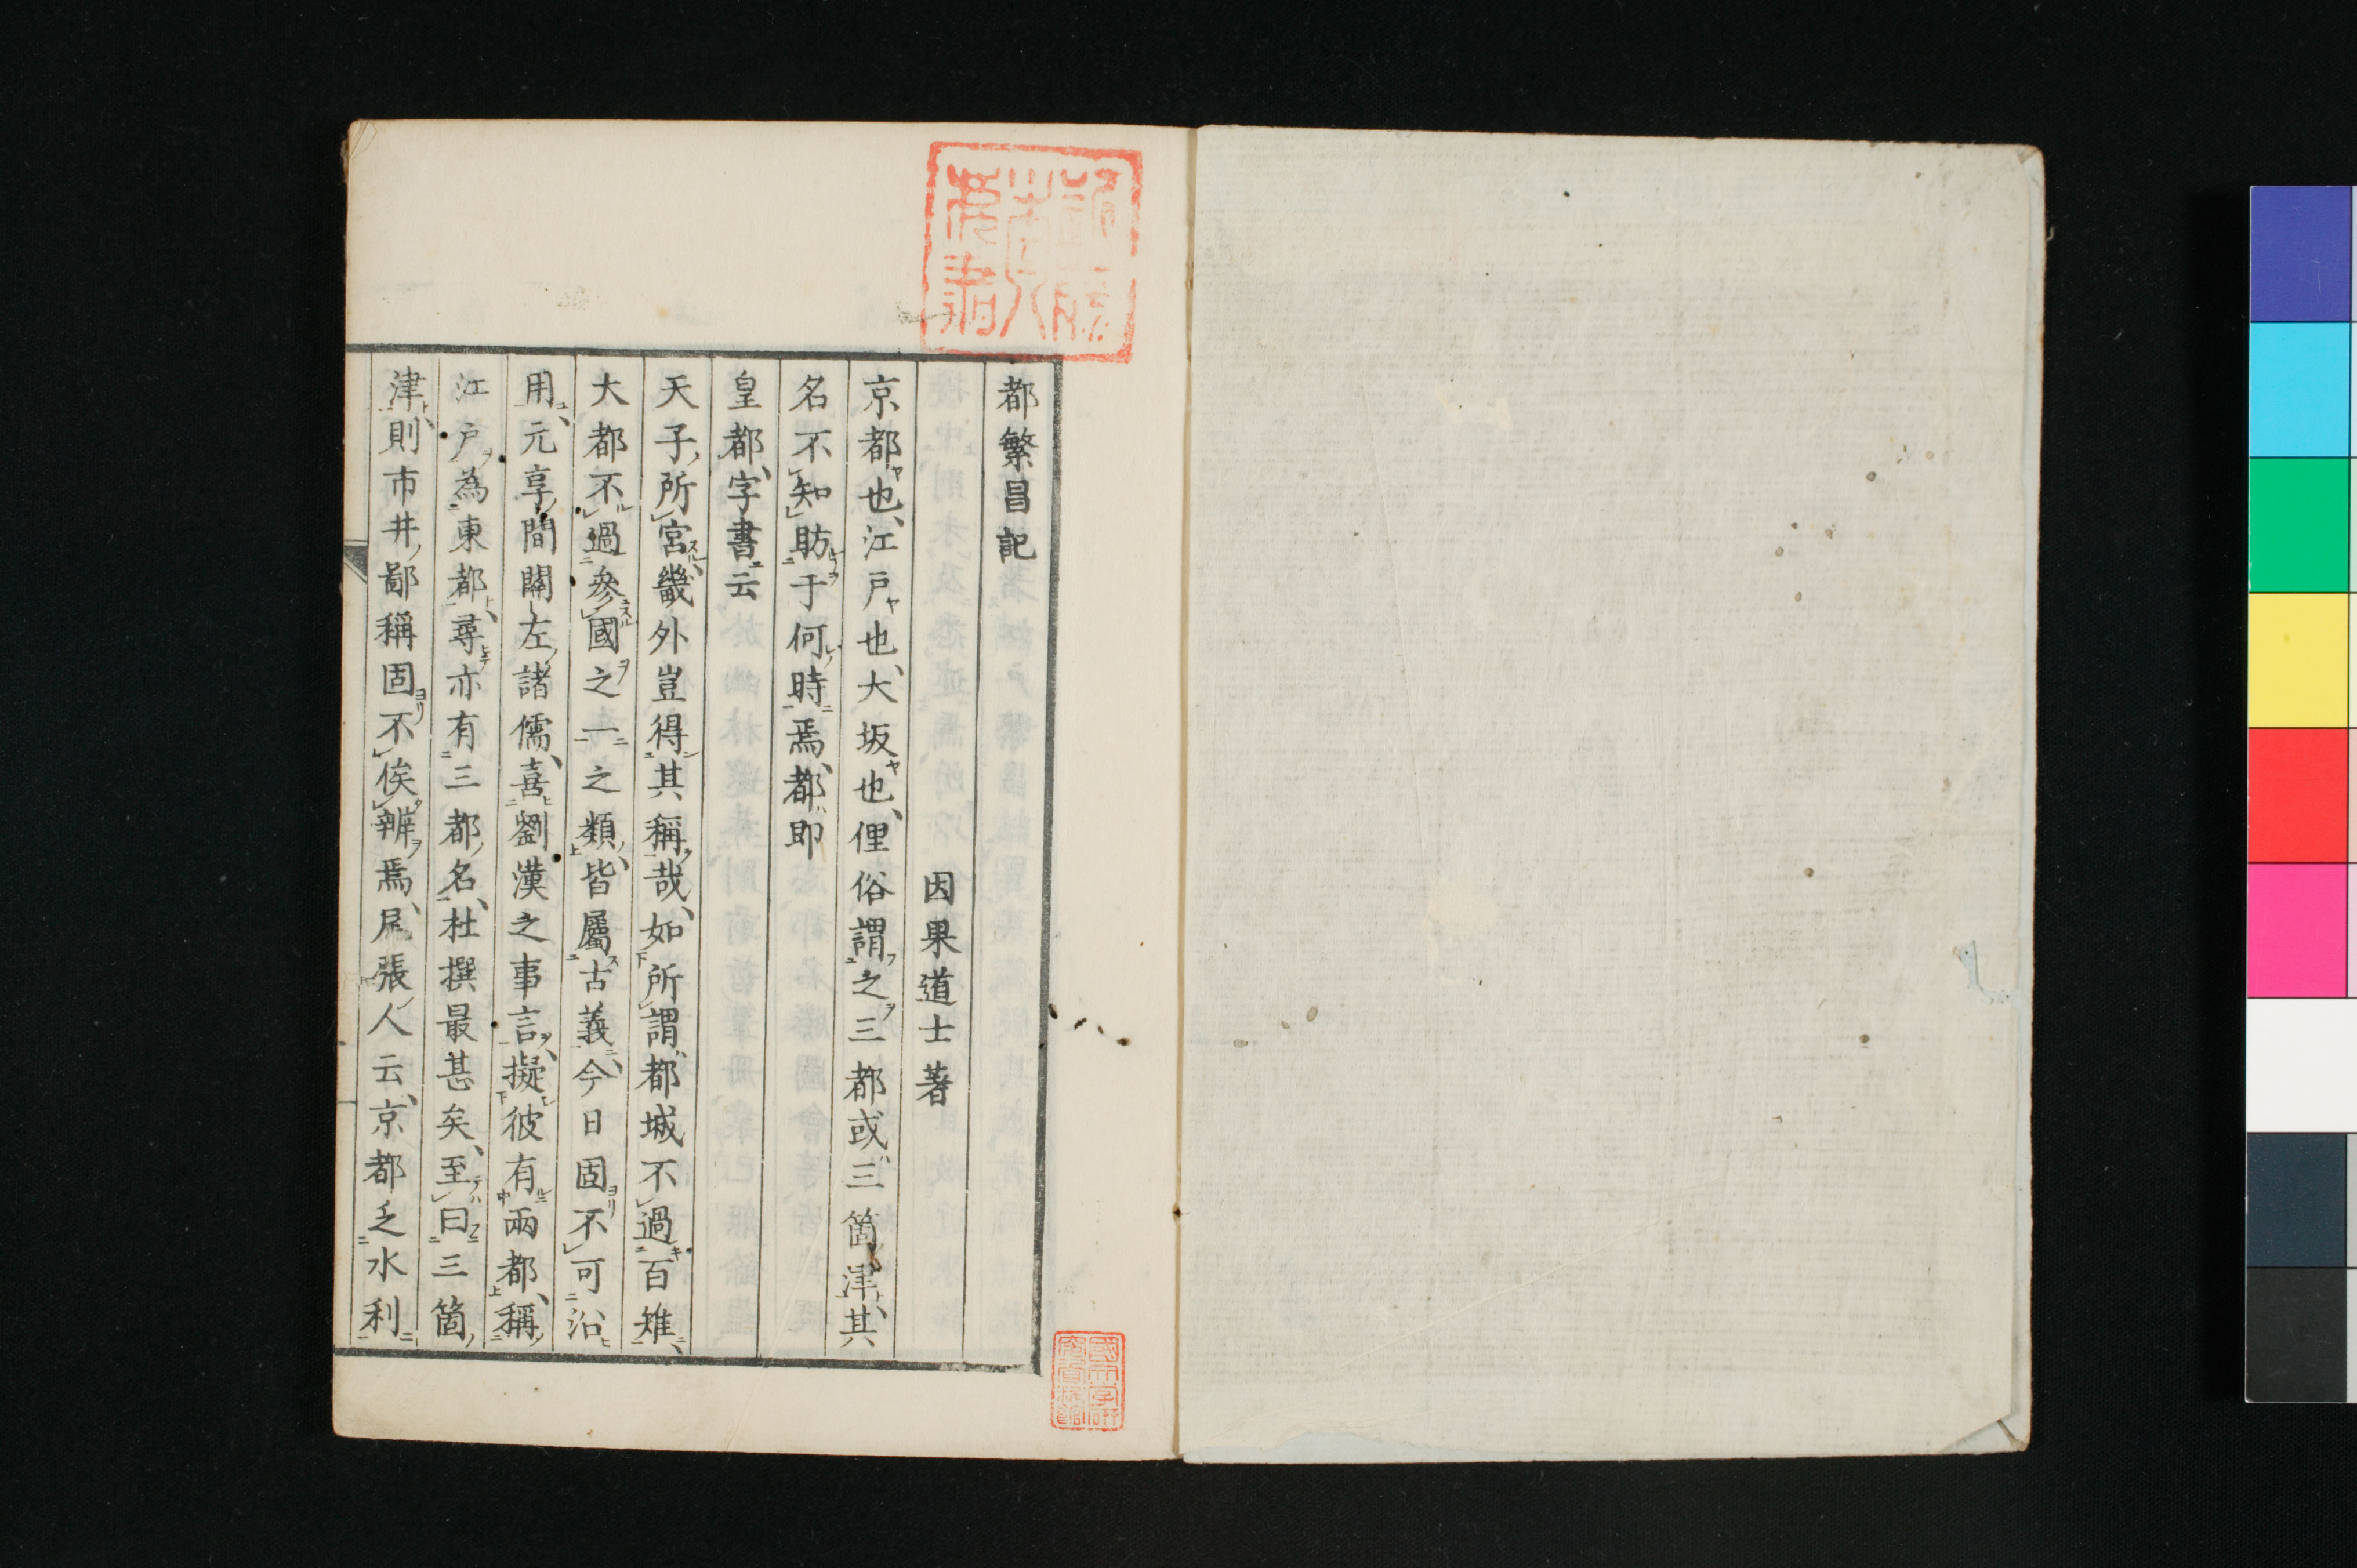 都繁昌記
因果道士著
京都也、江戸也、大坂也、俚俗謂之三都或三箇津、其
名不知昉于何時焉、都即
皇都、字書云
天子所宮、畿外豈得其稱哉、如所謂都城不過百雉、
大都不過參國之一之類、皆屬古義、今日固不可沿
用、元享間關左諸儒、喜劉漢之事言、擬彼有兩都、稱
江戸為東都、尋亦有三都名、杜撰最甚矣、至曰三箇
津、則市井鄙稱固不俟辨焉、尾張人云、京都乏水利